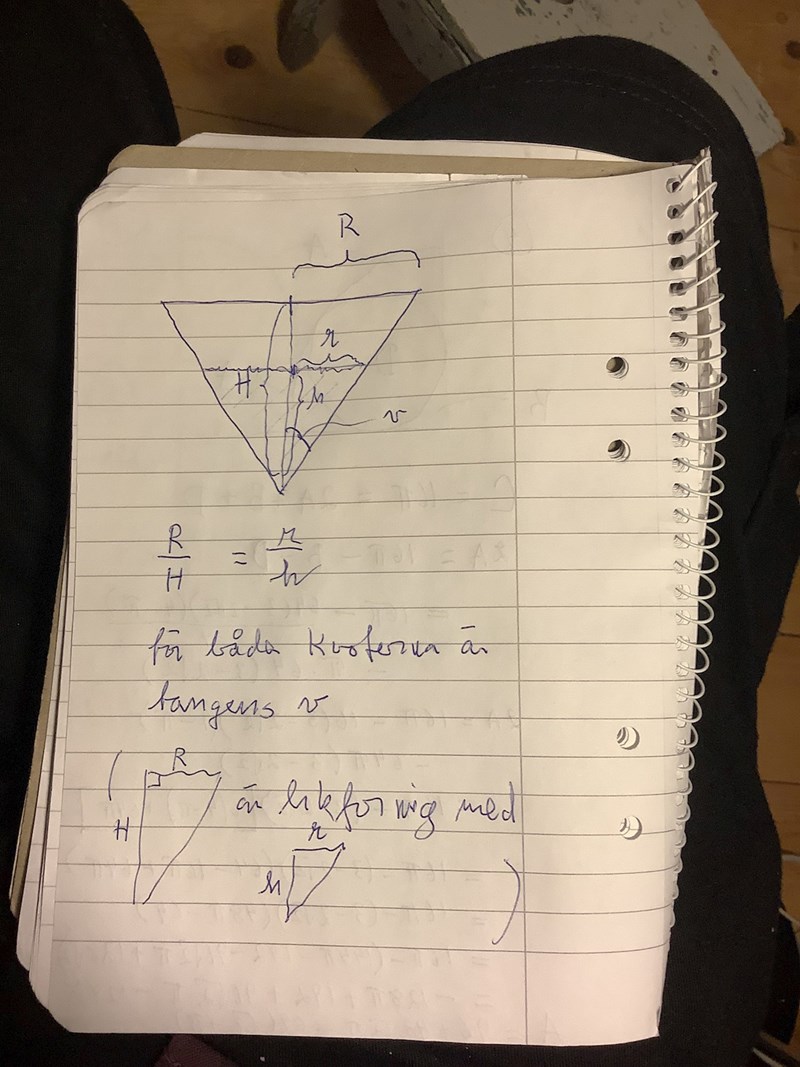 R
r
H h
v
R/H = r/h
för båda kvoterna är
tangens v
( R
H är likformig med
r
h )